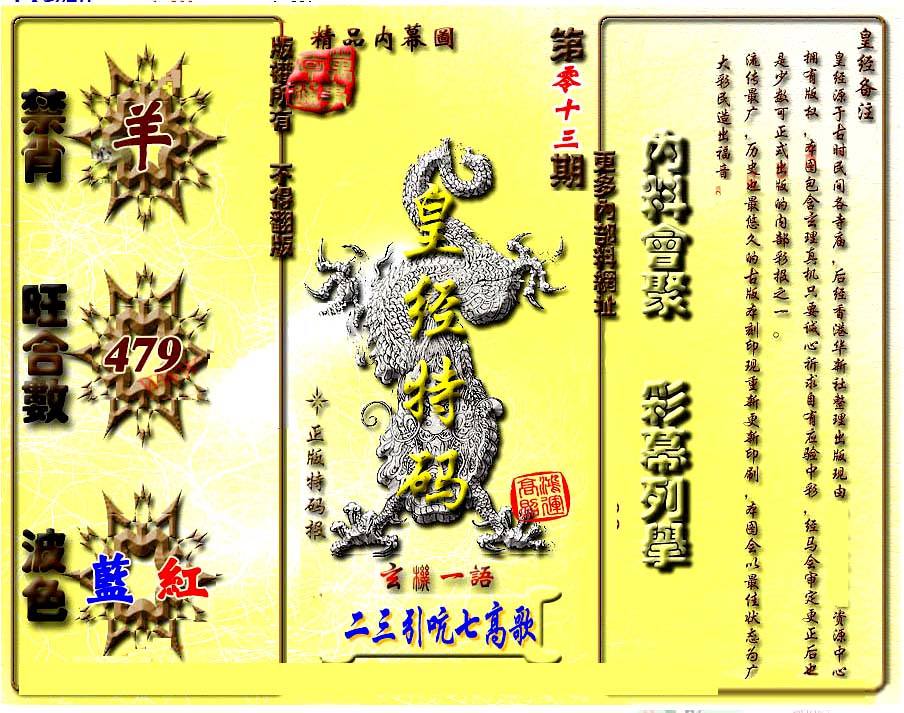 精品内幕圖
版權所有 不得翻版
第零十三期
更多內部料網址
禁肖
羊
旺合數
479
波色
藍 紅
皇经特码
正版特码报
鴻運高照
玄機一語
二三引吭七高歌
內料會聚 彩幕列舉
皇经备注
皇经源于古时民间各寺庙,后经香港华新社整理出版现由 资源中心
拥有版权,本图包含玄理真机只要诚心祈求自有应验中彩,经马会审定更正后也
是少数可正式出版的内部彩报之一。
流传最广,历史也最悠久的古版本刻印现重新更新印刷,本图会以最佳状态为广
大彩民造出福音